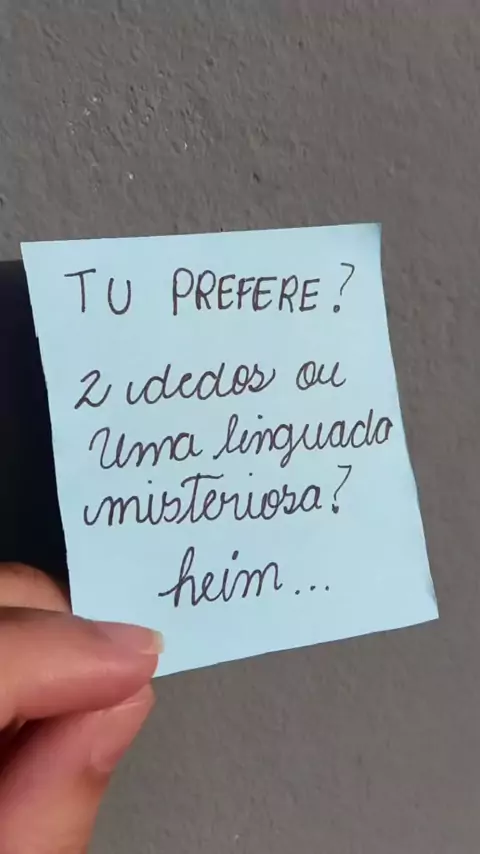 TU PREFERE?
2 dedos ou
uma linguada
misteriosa?
heim...